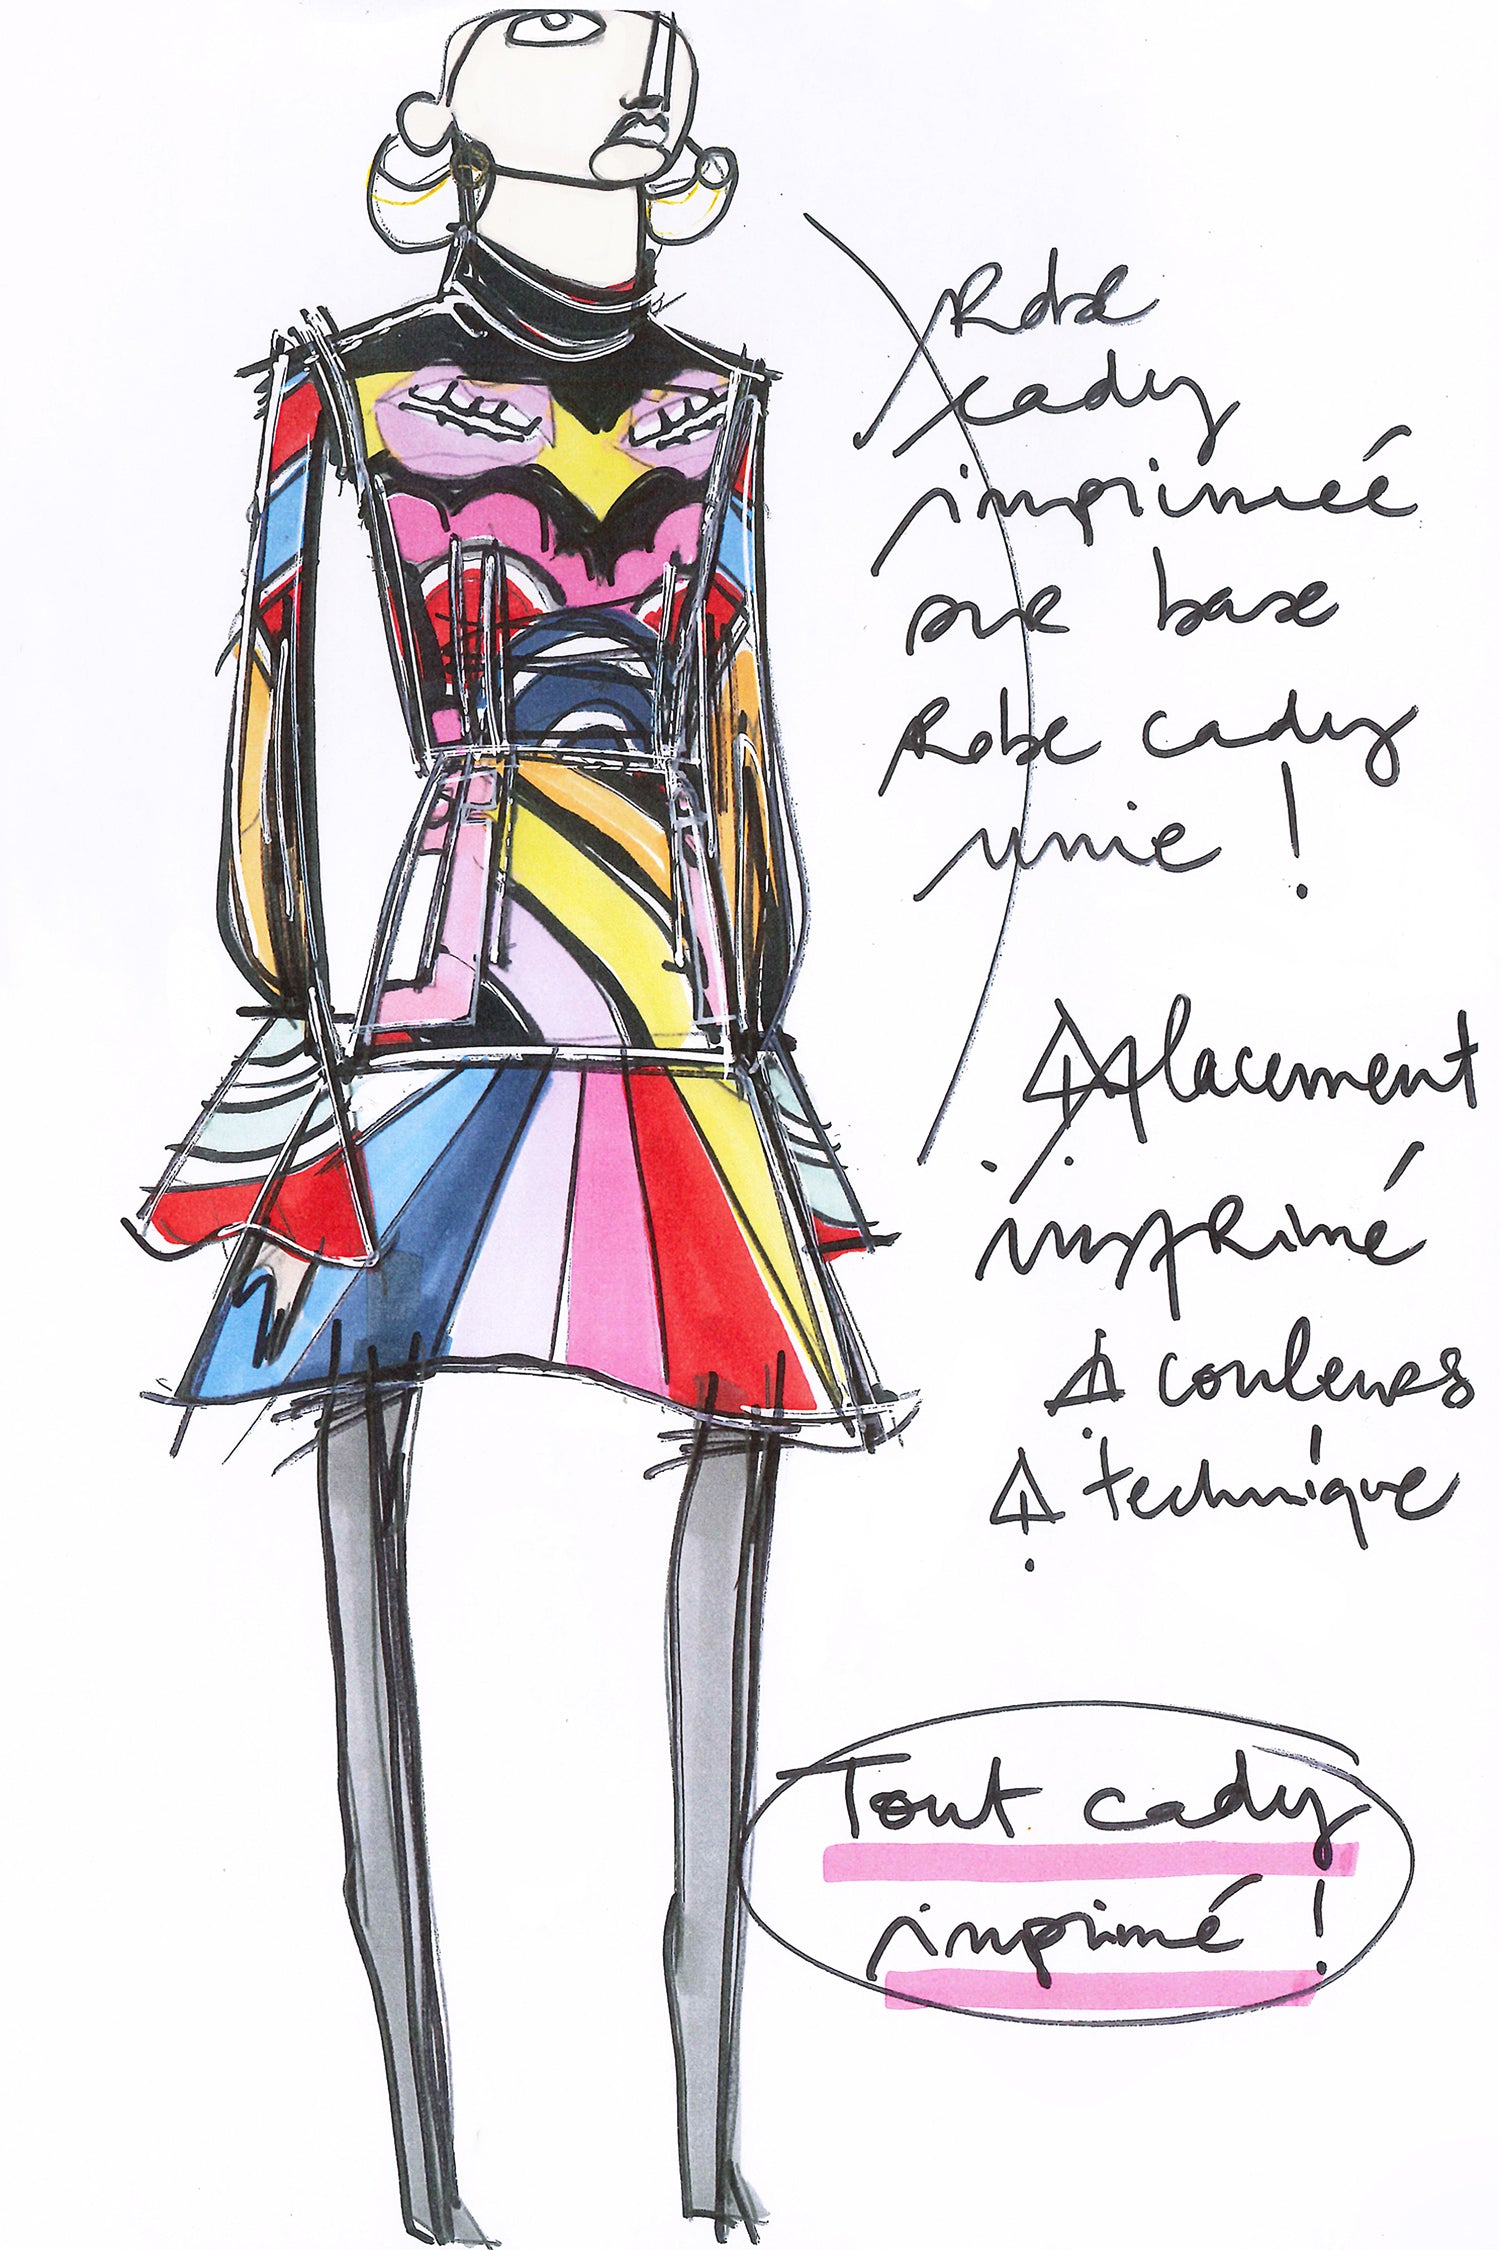 Robe
cady
imprimée
sur base
Robe cady
unie !
placement
imprimé
couleurs
technique
Tout cady
imprimé !